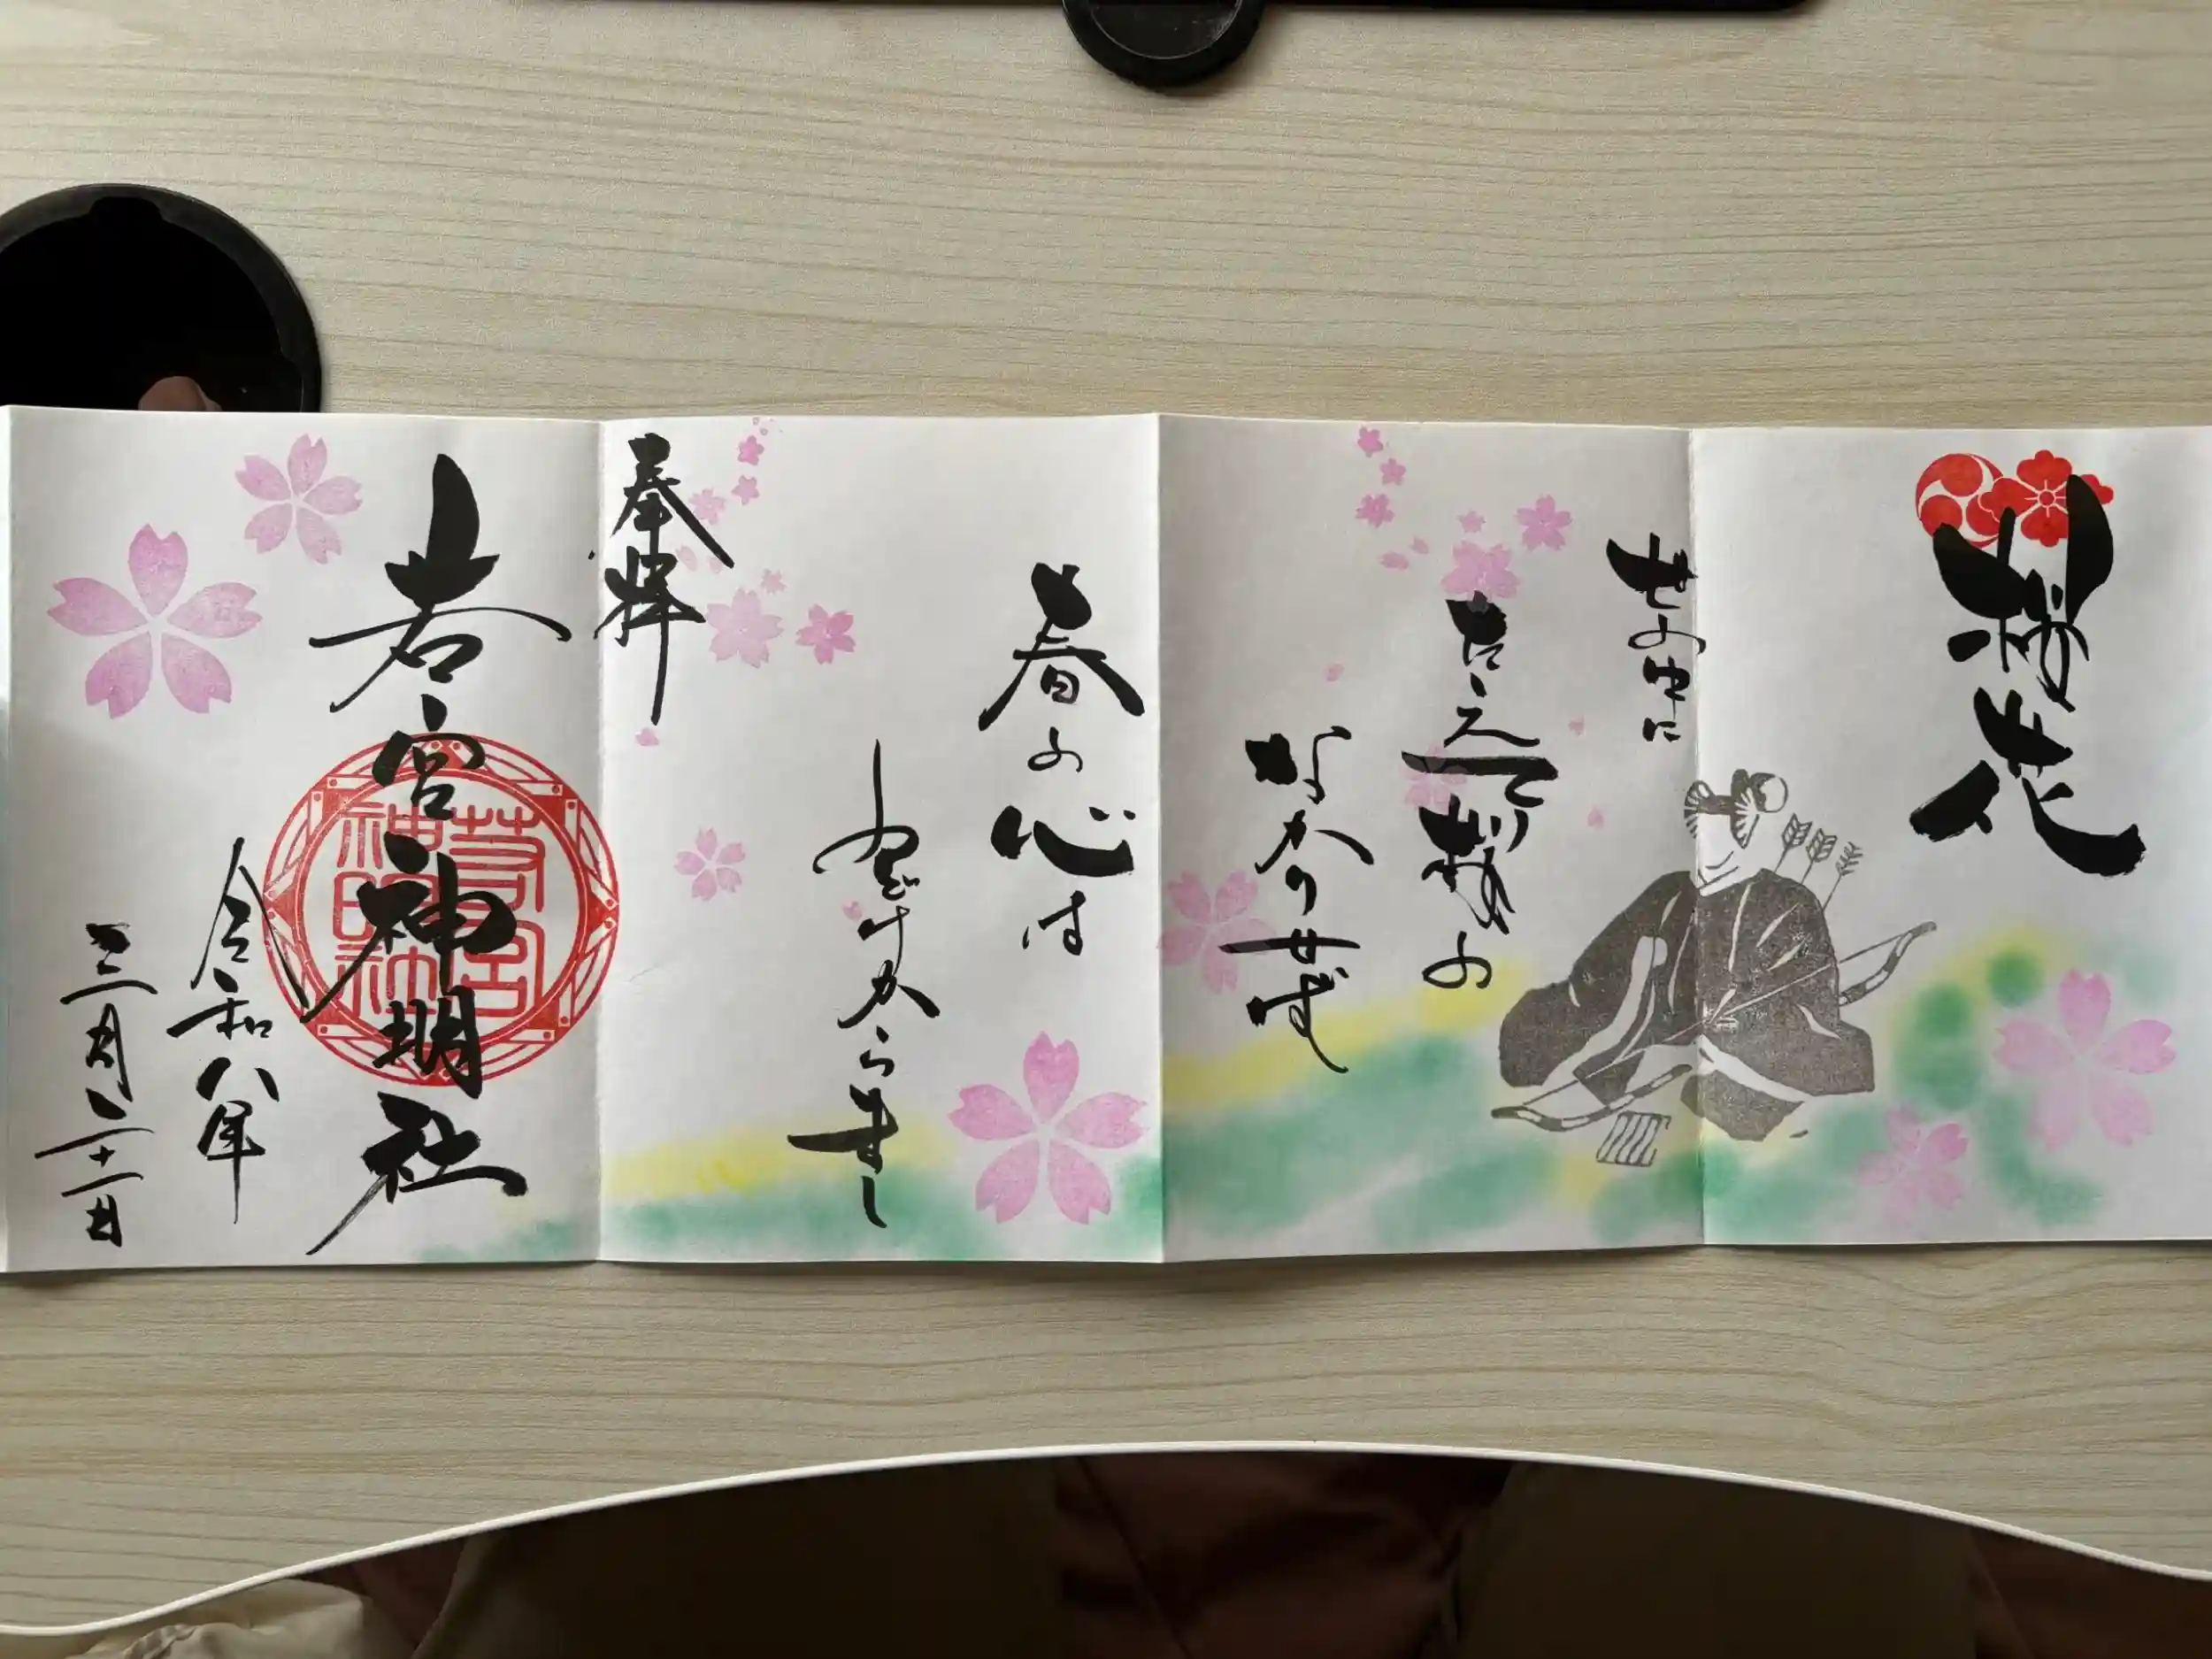 桜花
世の中に
たえて桜の
なかりせば
春の心は
のどけからまし
奉拝
若宮神明社
若宮
神明社
令和八年
三月二十一日